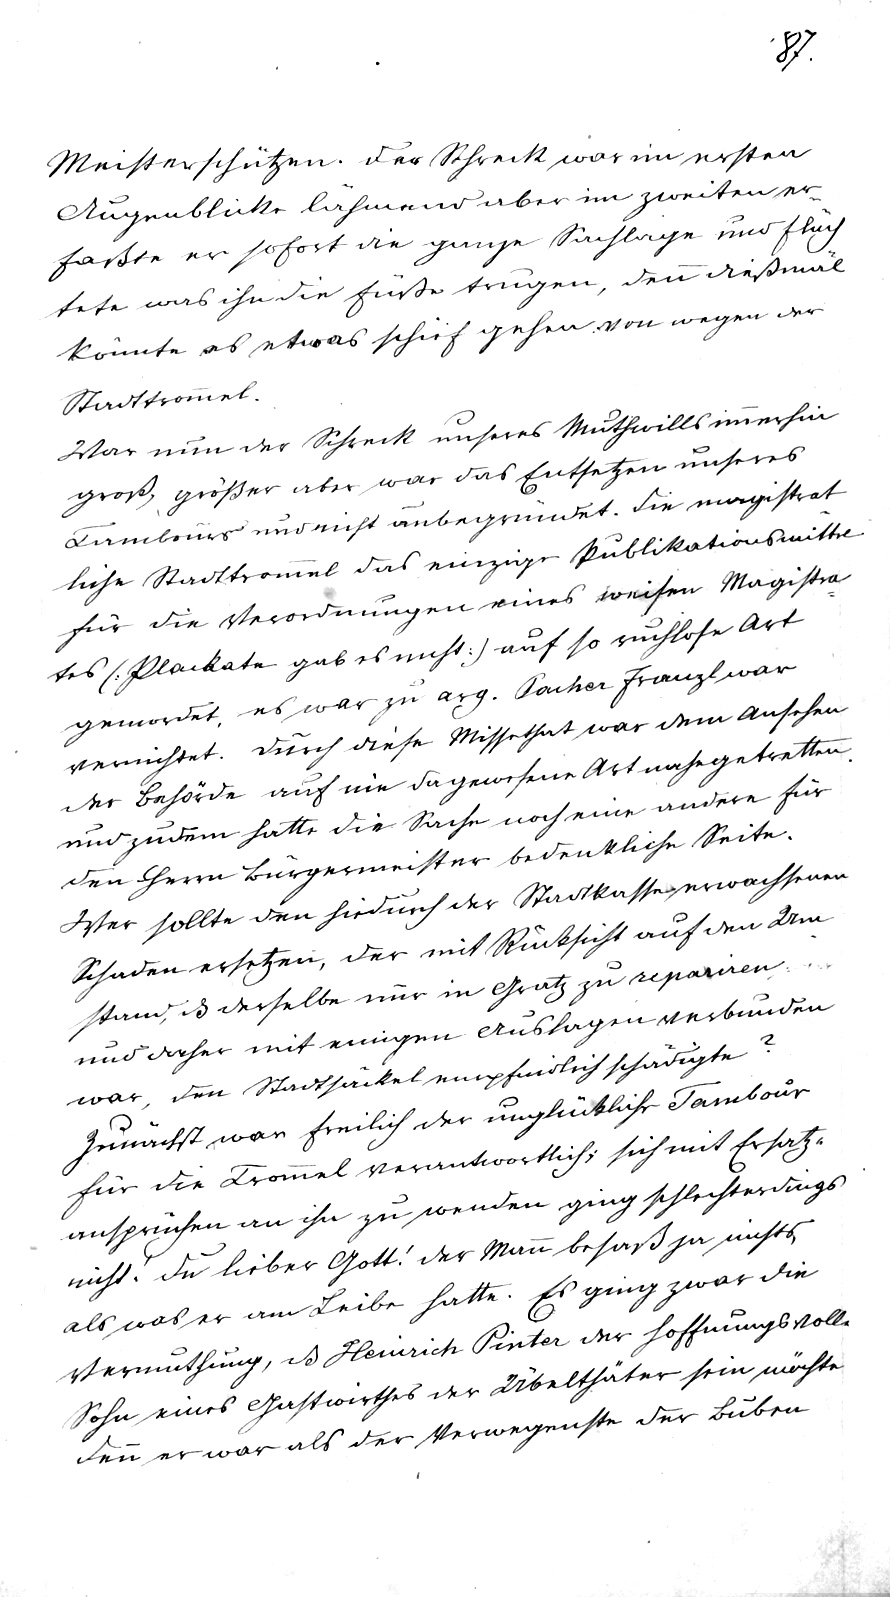 87.
Meisterschützen. Der Schreck war im ersten
Augenblicke lähmend aber im zweiten er-
faßte er sofort die ganze Sachlage und flüch
tete was ihn die Füße trugen, den̄ dießmal
könnte es etwas schief gehen von wegen der
Stadttrom̄el.
War nun der Schreck unseres Muthwills im̄erhin
groß, größer aber war das Entsetzen unseres
Tambours und nicht unbegründet. Die magistrat
liche Stadttrom̄el das einzige Publikationsmittel
für die Verordnungen eines weisen Magistra-
tes (: Plackate gab es nicht :) auf so ruchlose Art
gemordet, es war zu arg. Pacher Franzl war
vernichtet. Durch diese Missethat war dem Ansehen
der Behörde auf nie dagewesene Art nahegetretten
und zudem hatte die Sache noch eine andere für
den Herrn Bürgermeister bedenkliche Seite.
Wer sollte den hiedurch der Stadtkasse erwachsenen
Schaden ersetzen, der mit Rücksicht auf den Um
stand, ds derselbe nur in Gratz zu repariren
und daher mit einigen Auslagen verbunden
war, den Stadtsäckel empfindlich schädigte?
Zunächst war freilich der unglückliche Tambour
für die Trom̄el verantwortlich; sich mit Ersatz-
ansprüchen an ihn zu wenden ging schlechterdings
nicht! Du lieber Gott! der Man̄ besaß ja nichts
als was er am Leibe hatte. Es ging zwar die
Vermuthung, ds Heinrich Pinter der hoffnungsvolle
Sohn eines Gastwirthes der Übelthäter sein möchte
den̄ er war als der Verwegenste der Buben